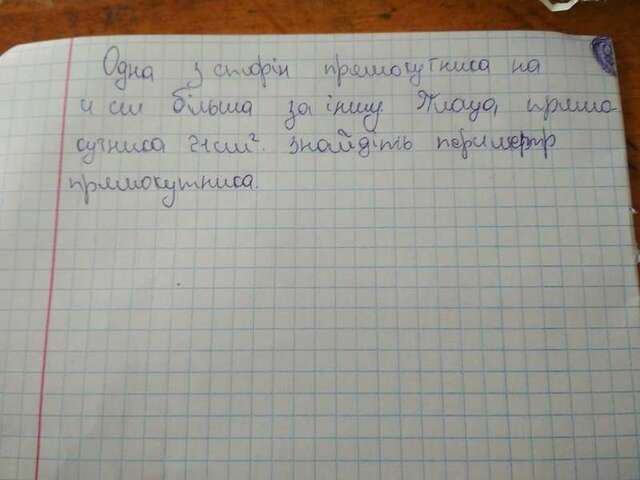 Одна з сторін прямокутника на
4 см більша за іншу Площа прямо
кутника 21см². знайдіть периметр
прямокутника.